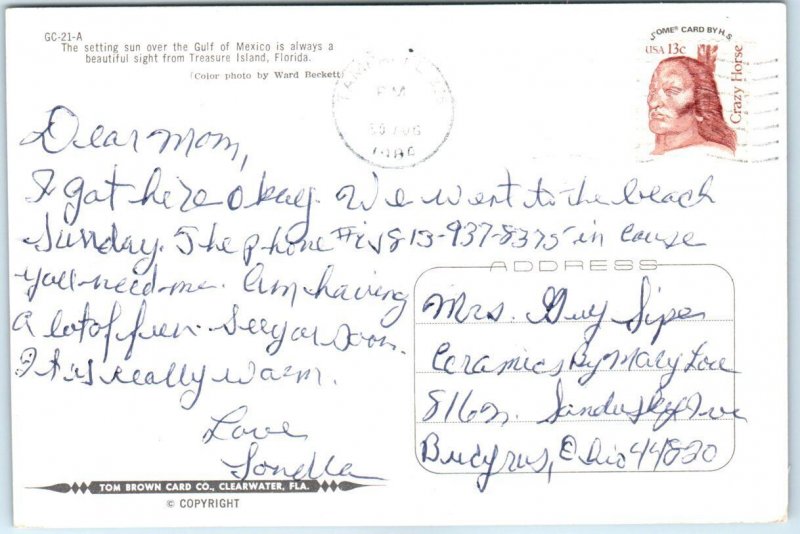 GC-21-A
The setting sun over the Gulf of Mexico is always a
beautiful sight from Treasure Island, Florida.
(Color photo by Ward Beckett)
PM
AUG
CARD BY H.S
USA 13c
Crazy Horse
Dear Mom,
I got here okay. We went to the beach
Sunday. The phone # is 813-937-8375 in cause
you need me. Am having
a lot of fun. See you soon.
It is really warm.
Love
Londla
ADDRESS
Mrs. Guy Sipes
Ceramics By Mary Lou
816 N. Sandusky Ave
Bucyrus, Ohio 44820
TOM BROWN CARD CO., CLEARWATER, FLA.
© COPYRIGHT